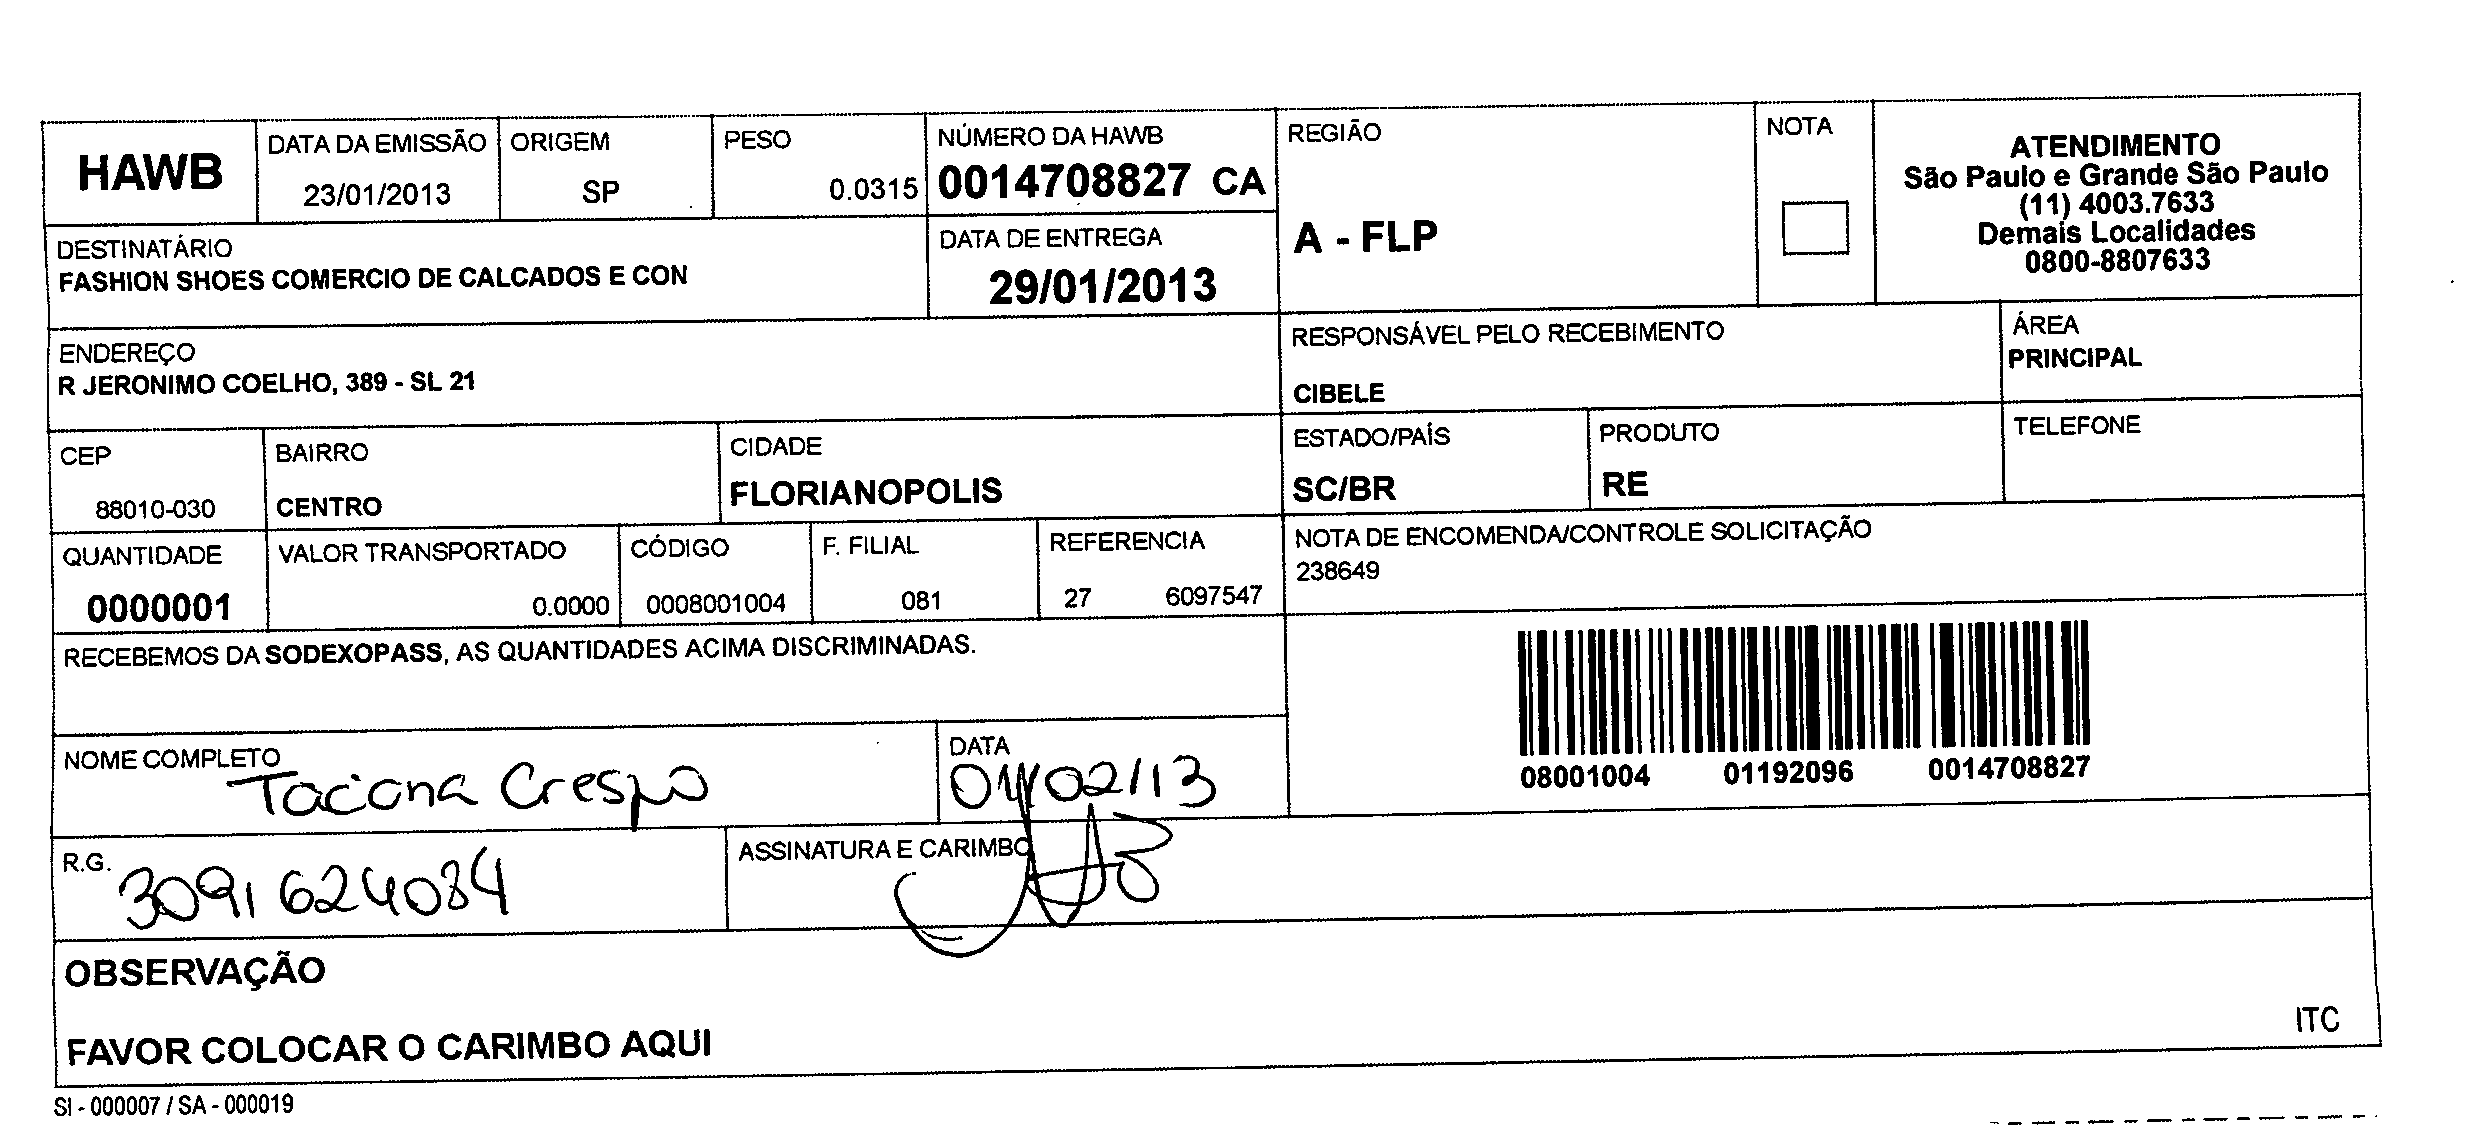 HAWB
DATA DA EMISSÃO
23/01/2013
ORIGEM
SP
PESO
0.0315
NÚMERO DA HAWB
0014708827 CA
REGIÃO
A - FLP
NOTA
ATENDIMENTO
São Paulo e Grande São Paulo
(11) 4003.7633
Demais Localidades
0800-8807633
DESTINATÁRIO
FASHION SHOES COMERCIO DE CALCADOS E CON
DATA DE ENTREGA
29/01/2013
ENDEREÇO
R JERONIMO COELHO, 389 - SL 21
RESPONSÁVEL PELO RECEBIMENTO
CIBELE
ÁREA
PRINCIPAL
CEP
88010-030
BAIRRO
CENTRO
CIDADE
FLORIANOPOLIS
ESTADO/PAÍS
SC/BR
PRODUTO
RE
TELEFONE
QUANTIDADE
0000001
VALOR TRANSPORTADO
0.0000
CÓDIGO
0008001004
F. FILIAL
081
REFERENCIA
27 6097547
NOTA DE ENCOMENDA/CONTROLE SOLICITAÇÃO
238649
RECEBEMOS DA SODEXOPASS, AS QUANTIDADES ACIMA DISCRIMINADAS.
08001004 01192096 0014708827
NOME COMPLETO
Taciana Crespo
DATA
R.G.
3091624084
ASSINATURA E CARIMBO
OBSERVAÇÃO
FAVOR COLOCAR O CARIMBO AQUI
ITC
SI - 000007 / SA - 000019